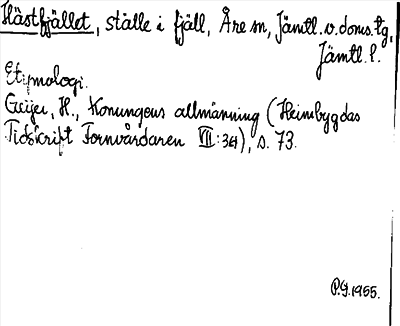 Hästfjället, ställe i fjäll, Åre sn, Jämtl. v. doms. tg,
Jämtl. l.
Etymologi.
Geijer, H., Konungens allmänning (Heimbygdas
Tidskrift Fornvårdaren VII:3-4), s. 73.
P.G. 1955.